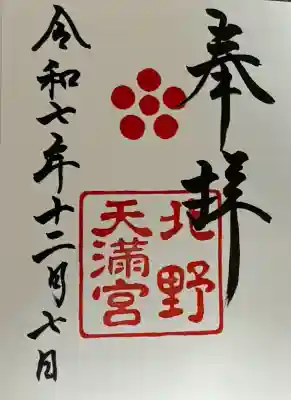 奉拝
北野
天満宮
令和七年十二月七日